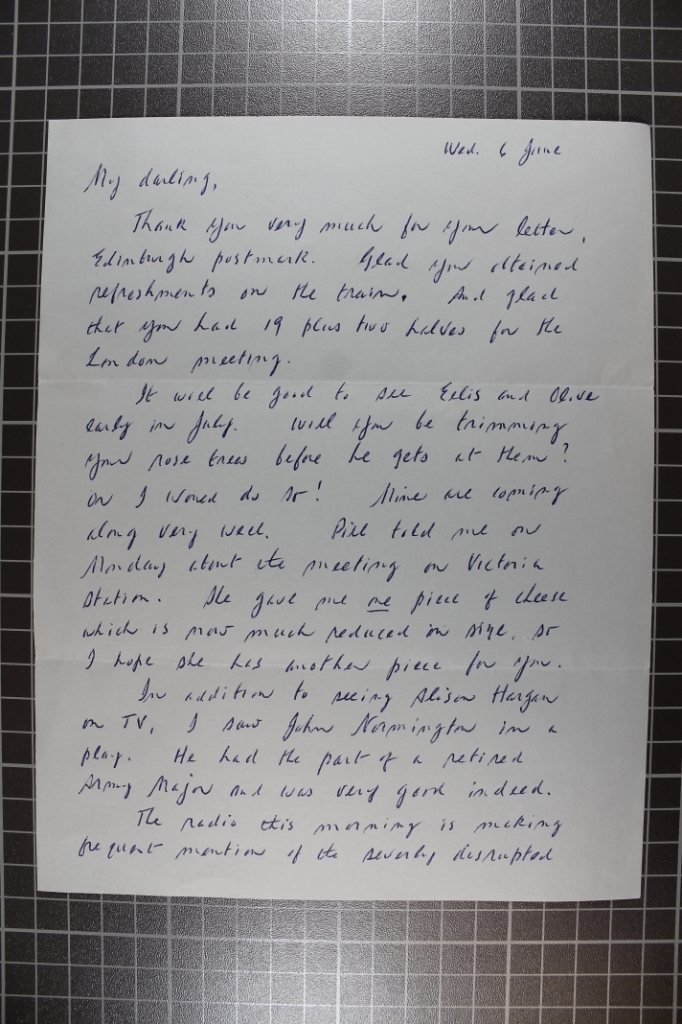 Wed. 6 June
My darling,
Thank you very much for your letter,
Edinburgh postmark. Glad you obtained
refreshments on the train. And glad
that you had 19 plus two halves for the
London meeting.
It will be good to see Eilis and Clive
early in July. Will you be trimming
your rose trees before he gets at them?
Or I would do so! Mine are coming
along very well. told me on
Monday about the meeting on Victoria
Station. She gave me one piece of cheese
which is now much reduced in size, so
I hope she has another piece for you.
In addition to seeing Alison Hargan
on TV, I saw John Normington in a
play. He had the part of a retired
Army Major and was very good indeed.
The radio this morning is making
frequent mention of the severely disrupted